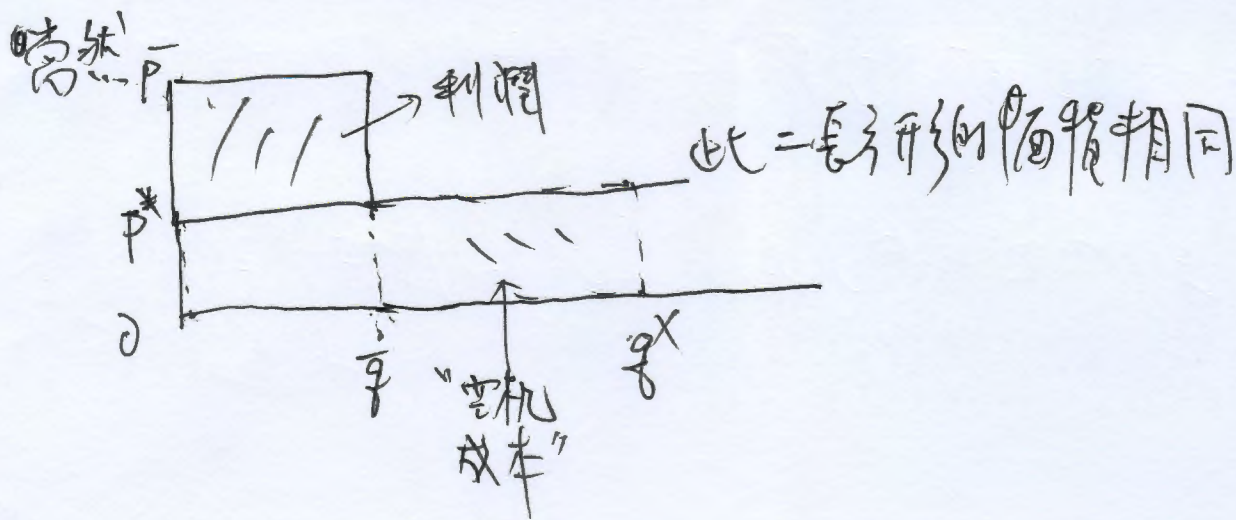 當然
P̄
利潤
此二長方形的面積相同
P*
0
q̄
q*
"空机
成本"